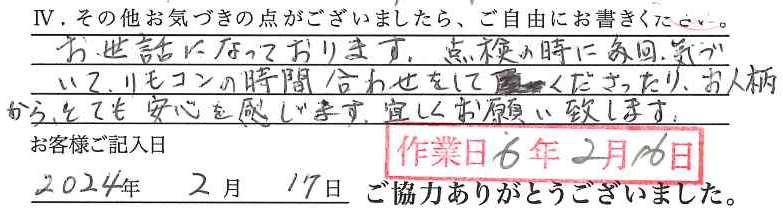 Ⅳ．その他お気づきの点がございましたら、ご自由にお書きください。
お世話になっております。点検の時に毎回、気づ
いて、リモコンの時間合わせをして くださったり、お人柄
から、とても安心を感じます。宜しくお願い致します。
お客様ご記入日
作業日 6年 2月 16日
2024年 2月 17日 ご協力ありがとうございました。